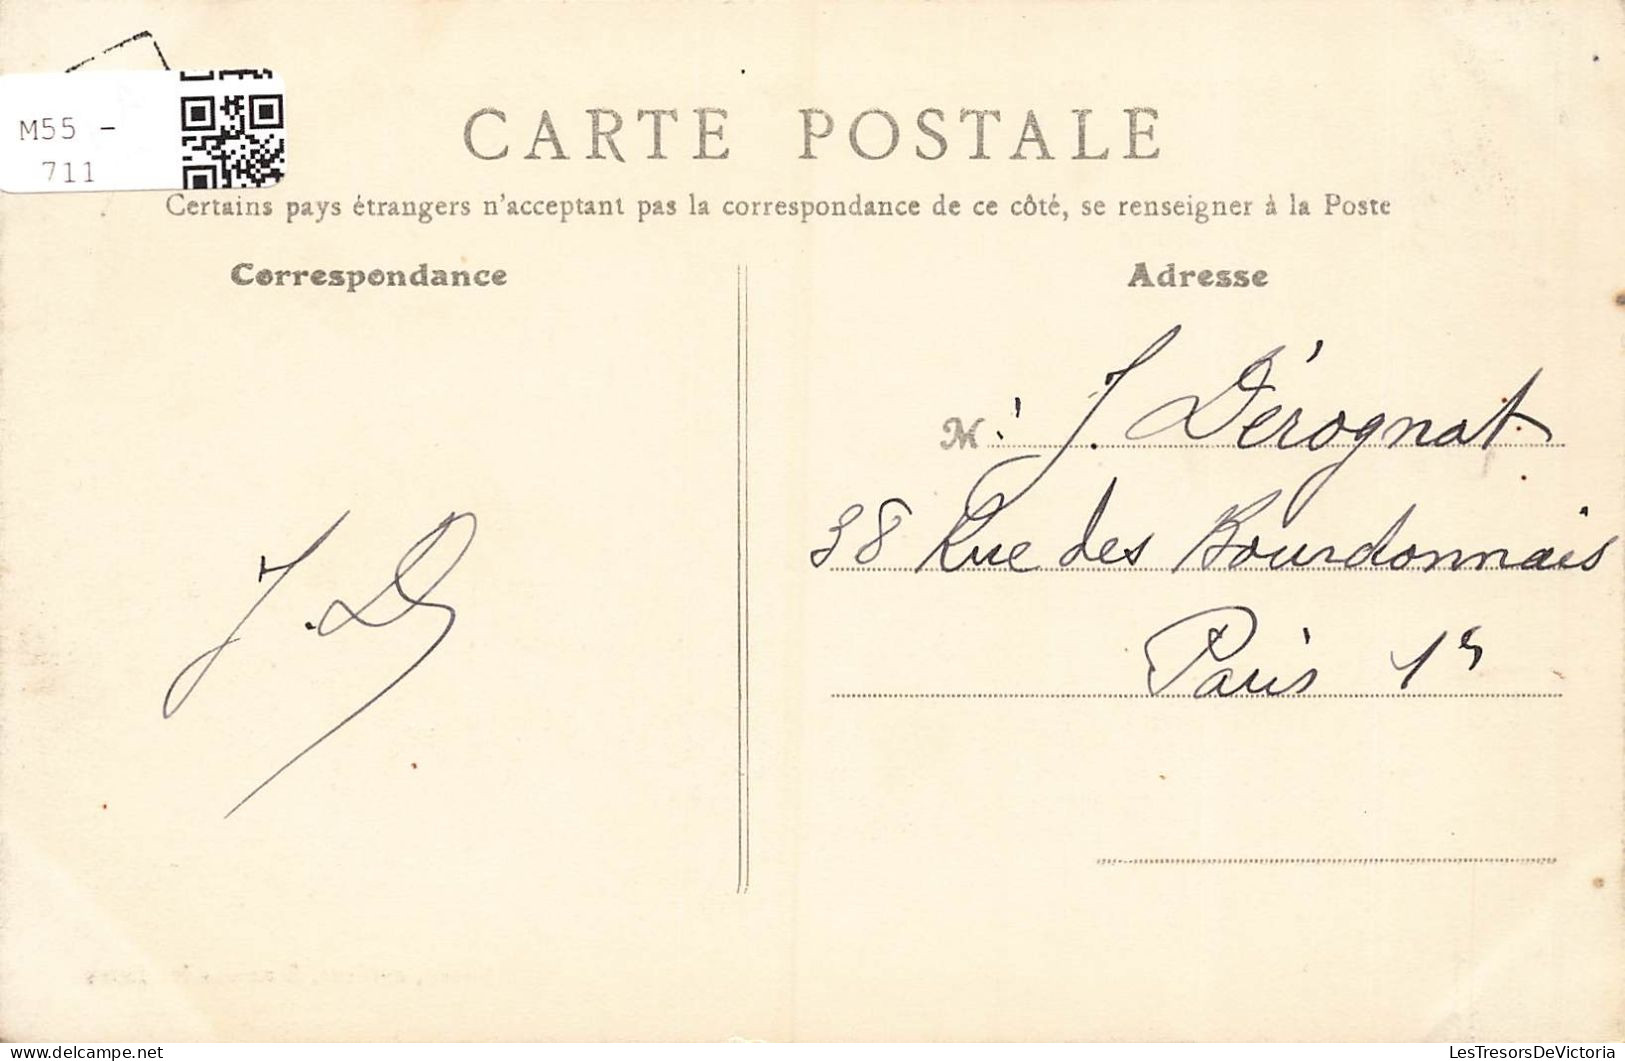 M55 -
711
CARTE POSTALE
Certains pays étrangers n'acceptant pas la correspondance de ce côté, se renseigner à la Poste
Correspondance
Adresse
M. J. Dérognat
38 Rue des Bourdonnais
Paris 1er
J. D
LesTresorsDeVictoria